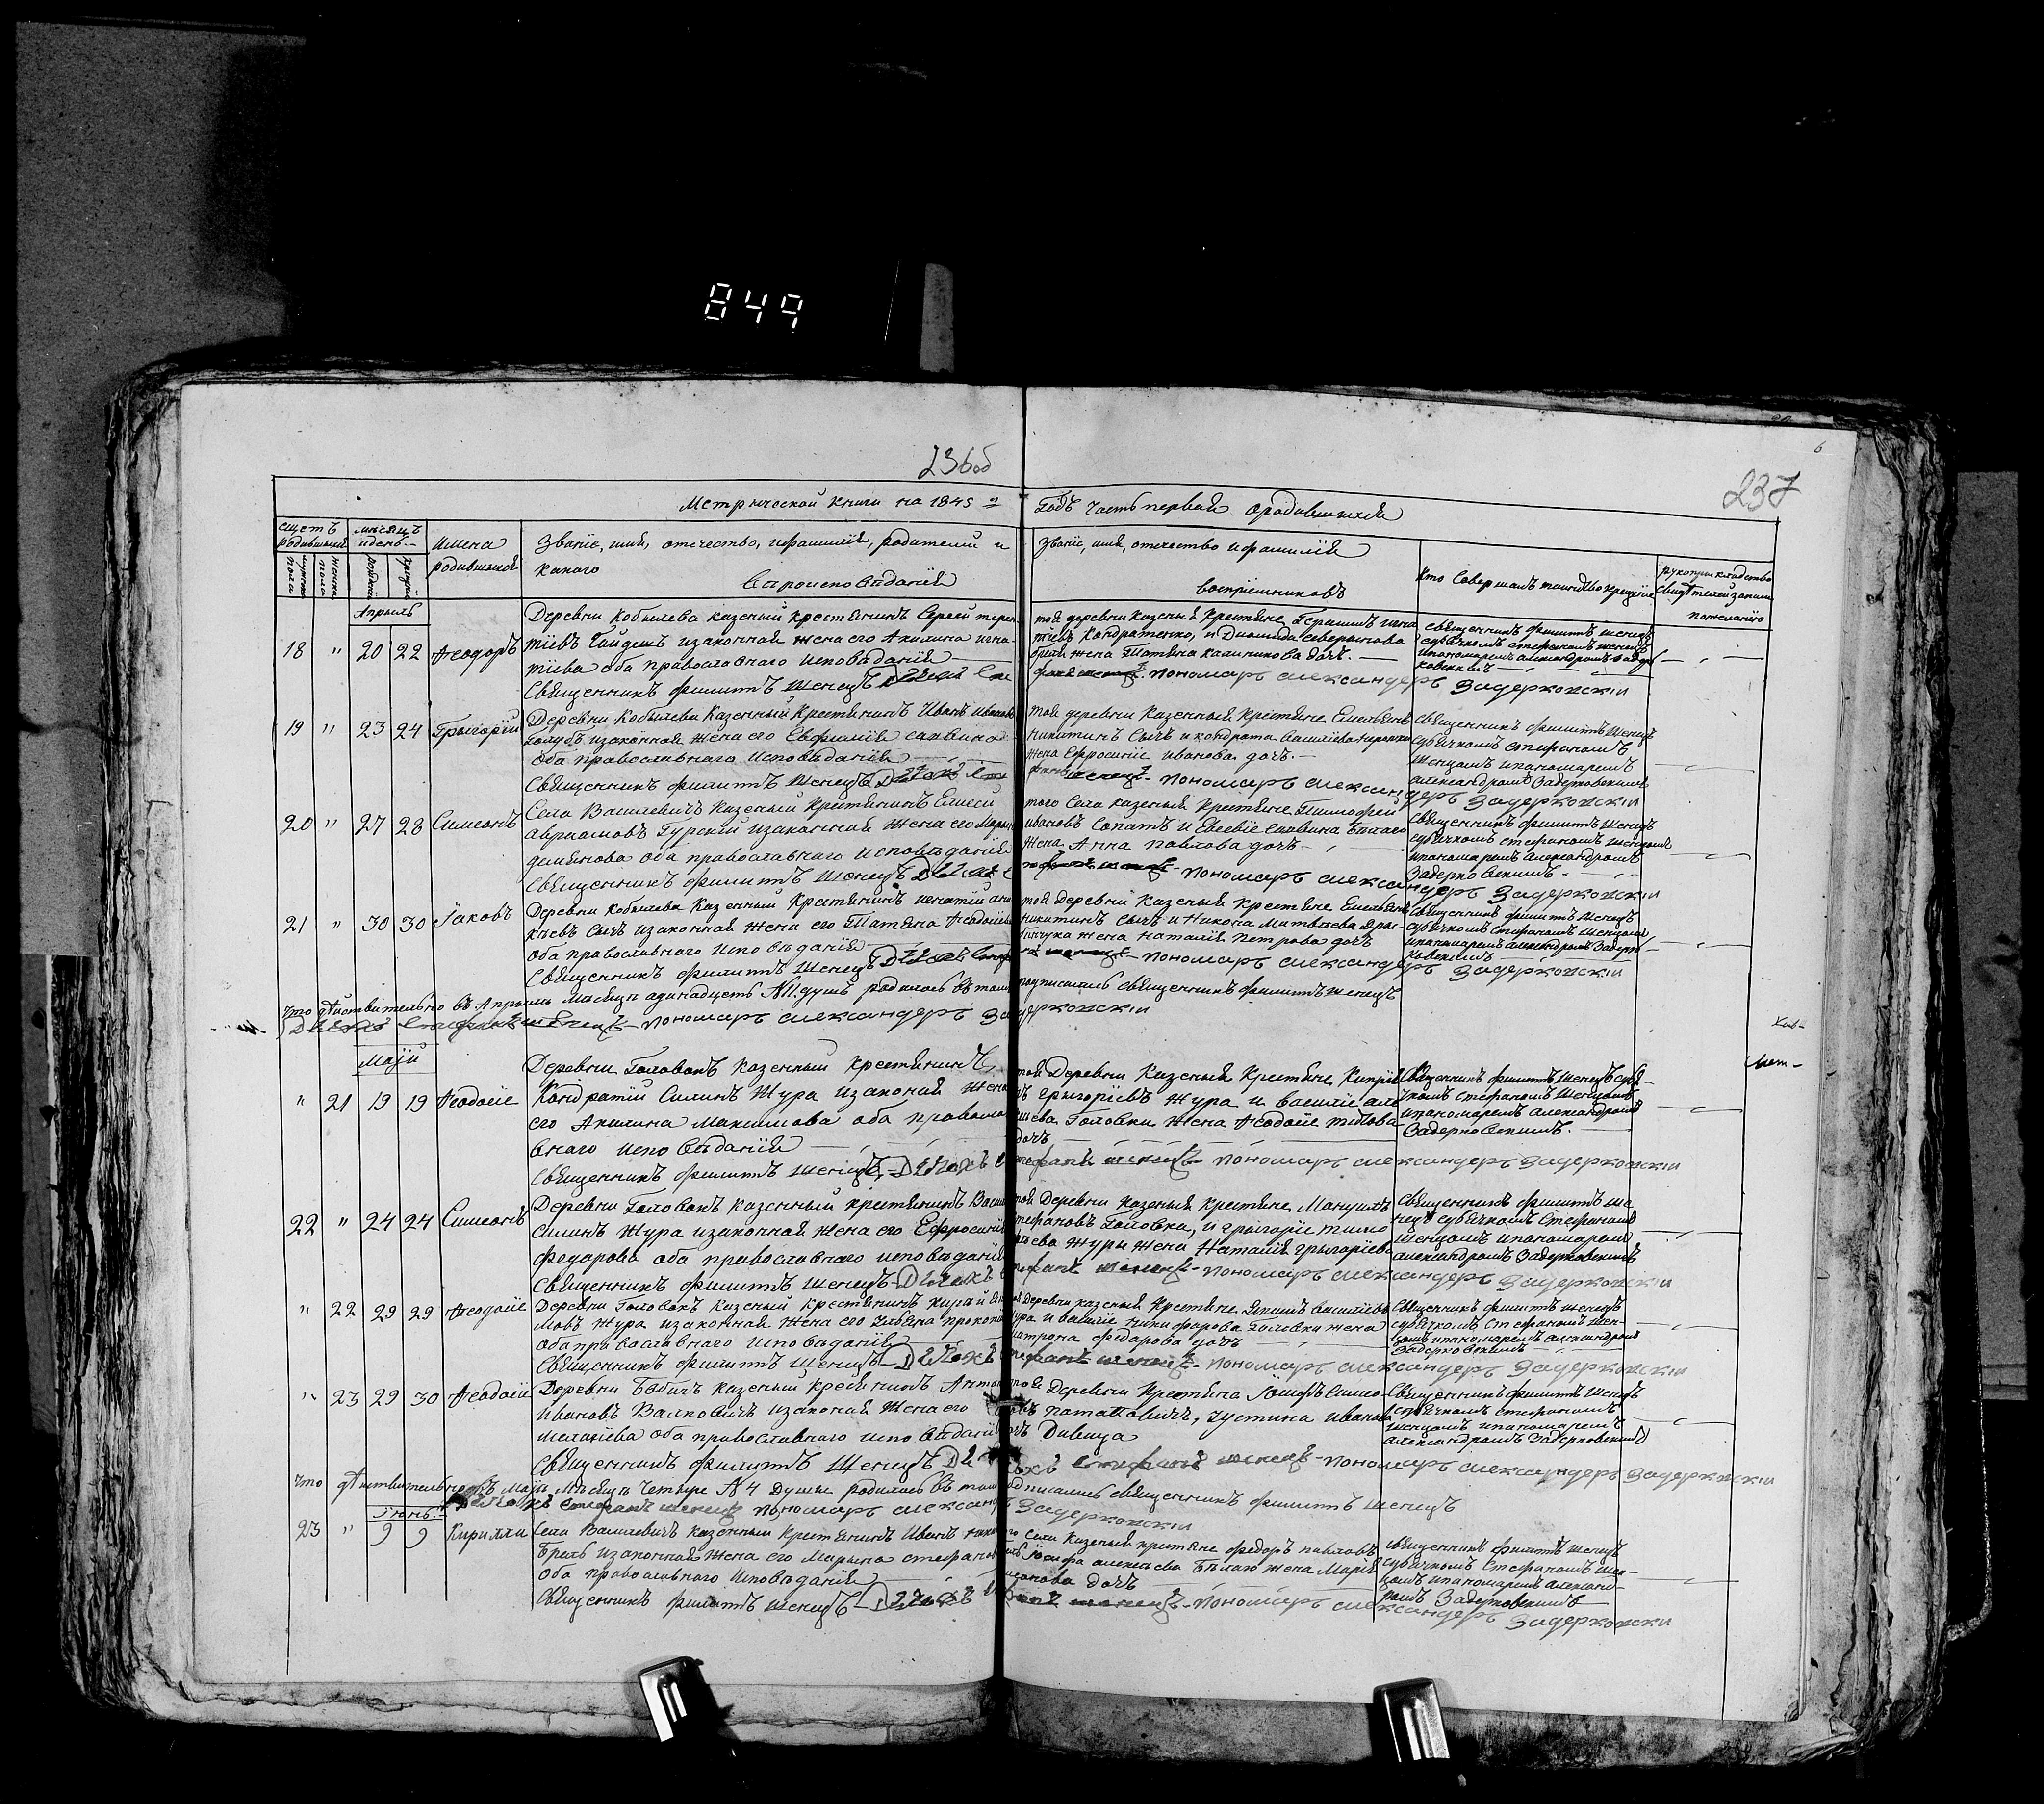 849
236об
237
6
Метрической книги на 1845 й
Годъ Часть первая о родившихся
Счетъ родившихся
Мужеска пола
Женска пола
Месяцъ и день
Рождения
Крещения
Имена родившихся
Званіе, имя, отчество, и фамилія, родителей и
какого
Вероисповеданія
Званіе, имя, отчество и фамилія
воспріемниковъ
Кто Совершалъ таинство крещенія
Рукоприкладство
свидетелей записи
по желанію
Апрель
18 " 20 22 Феодоръ
Деревни Кобылева казеный крестянинъ Сергей терен
тіевъ Гайдешъ изаконная жена его Акилина игна
тіева оба православного Исповеданія
Священникъ филиптъ Шенецъ Дьячокъ Сте
той деревни казеныя Крестяне Герасимъ игна
тіевъ Кондратенко, и Диомида северьянова
жена Татяна калиникова дочъ.
фанъ шенецъ. пономаръ александеръ Задерковскій
священникъ филиптъ шенецъ
судьячкомъ стефаномъ шенцомъ
ипономаремъ александромъ Задер
ковскимъ
19 " 23 24 Грыгорій
Деревни Кобылева Казенный Крестянинъ Иванъ Иванов
Голубъ изаконная жена его Евфимія саввина
оба православного Исповеданія
Священникъ филиптъ Шенецъ Дьячокъ Сте
той деревни Казенныя Крестяне Емельянъ
никитинъ Сычъ и кондрата василіева
жена Ефросиніе иванова дочъ.
фанъ шенецъ. пономаръ александеръ Задерковскій
Священникъ филиптъ Шенецъ
судьячкомъ стефаномъ
шенцомъ ипономаремъ
александромъ Задерковскимъ
20 " 27 28 Симеонъ
Села Василевичъ Казеный Крестянинъ Елисей
авраамовъ Гурскій изаконная жена его Марьи
демянова оба православного исповеданія
Священникъ филиптъ Шенецъ Дьячокъ
того Села казеныя Крестяне Тимофей
ивановъ Сопатъ и Евсевіе саввина Белаго
жена Анна павлова дочъ
стефанъ шенецъ. пономаръ александеръ Задерковскій
Священникъ филиптъ Шенецъ
судьячкомъ стефаномъ Шенцомъ
ипономаремъ Александромъ
Задерковскимъ
21 " 30 30 Іаковъ
Деревни Кобылева Казенный Крестянинъ игнатій
Сычъ изаконная жена его Татяна Феодосіев
оба православного исповеданія
Священникъ филиптъ Шенецъ Дьячокъ Стеф
той Деревни Казеныя Крестяне Емельянъ
никитинъ Сычъ и Никона Матвеева
жена наталия Петрова дочъ
анъ шенецъ. пономаръ александеръ Задерковскій
Священникъ филиптъ Шенецъ
судьячкомъ Стефаномъ Шенцомъ
ипономаремъ александромъ Задер
ковскимъ
что действительно въ Апреле Месяце адинадцеть №11 душъ родилось въ томъ подписались священникъ филиптъ шенецъ
Дьячокъ Стефанъ шенецъ пономаръ александеръ Задерковскій
Маій
" 21 19 19 Феодосіе
Деревни Головокъ Казенный Крестянинъ
Кондратій Силинъ Жура изаконая жена
его Акилина Максимова оба правосла
вного исповеданія
Священникъ филиптъ Шенецъ Дьячокъ С
той Деревни Казеныя Крестяне Кипріа
нъ грыгоріевъ Жура и василіе але
Головки жена Феодосіе титова
дочъ
тефанъ шенецъ. пономаръ александеръ Задерковскій
Священникъ филиптъ Шенецъ судья
чкомъ Стефаномъ Шенцомъ
ипономаремъ александромъ
Задерковскимъ.
22 " 24 24 Симеонъ
Деревни Головокъ Казенный крестянинъ Васил
Силинъ Жура изаконная жена его Ефросинія
Федарова оба православного исповеданія
Священникъ филиптъ Шенецъ Дьячокъ
той Деревни Казеныя Крестяне, Мануилъ
Стефановъ Головка, и грыгоріе тимо
феева Журы жена Наталія грыгоріева
стефанъ шенецъ. пономаръ александеръ Задерковскій
Священникъ филиптъ ше
нецъ судьячкомъ Стефаномъ
шенцомъ ипономаремъ
александромъ Задерковскимъ
" 22 29 29 Феодосіе
Деревни Головокъ Казеный Крестянинъ
мовъ Жура изаконная жена его Ульяна прокопо
оба православного исповеданія
Священникъ филиптъ Шенецъ Дьячокъ
Деревни казеныя Крестяне Якимъ василіевъ
Жура и василіе никифарова Головки жена
матрона федарова дочъ
стефанъ шенецъ. пономаръ александеръ Задерковскій
Священникъ филиптъ шенецъ
судьячкомъ Стефаномъ Шен
цомъ ипономаремъ александромъ
Задерковскимъ
" 23 29 30 Феодосіе
Деревни Бабичъ Казеный Крестянинъ Антон
Ивановъ Валковичъ изаконая жена его
Мелахіева оба православного исповеданія
Священникъ филиптъ Шенецъ Дья
той Деревни Крестяна Іосифъ Симео
новъ Патапович, Густина иванова
дочъ Дивица
чокъ Стефанъ шенецъ. пономаръ александеръ Задерковскій
Священникъ филиптъ Шенецъ
судьячкомъ стефаномъ
шенцомъ ипономаремъ
александромъ Задерковскимъ
что действительно въ Маіи Месяце Четыре №4 Душы родилось въ томъ подписались священникъ филиптъ шенецъ
Дьячокъ Стефанъ шенецъ пономаръ александеръ Задерковскій
Іюнь
23 " 9 9 Кирилла
Села Василевичъ Казенный Крестянинъ Иванъ
Брель изаконная жена его Марьна стефанов
оба православного исповеданія
Священникъ филиптъ Шенецъ Дьячокъ
того Села Казеныя крестяне федоръ павловъ
Іосифа алексеева Белаго жена Марія
дочъ
стефанъ шенецъ. пономаръ александеръ Задерковски
Священникъ филиптъ Шенецъ
судьячкомъ Стефаномъ шен
цомъ ипономаремъ алексан
ромъ Задерковскимъ